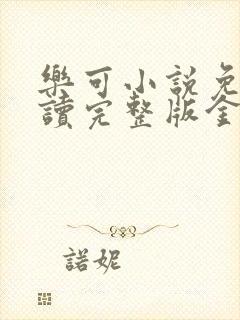 樂可小說免
讀完整版全
諾妮